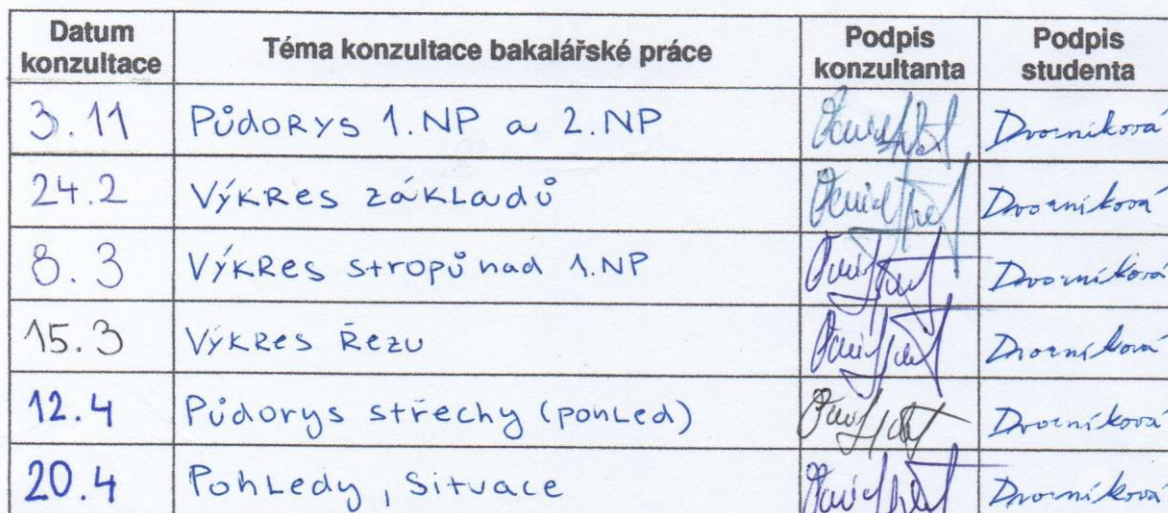 Datum konzultace Téma konzultace bakalářské práce Podpis konzultanta Podpis studenta
3.11 Půdorys 1.NP a 2.NP Dvorníková
24.2 Výkres základů Dvorníková
8.3 Výkres stropů nad 1.NP Dvorníková
15.3 Výkres řezu Dvorníková
12.4 Půdorys střechy (pohled) Dvorníková
20.4 Pohledy, Situace Dvorníková